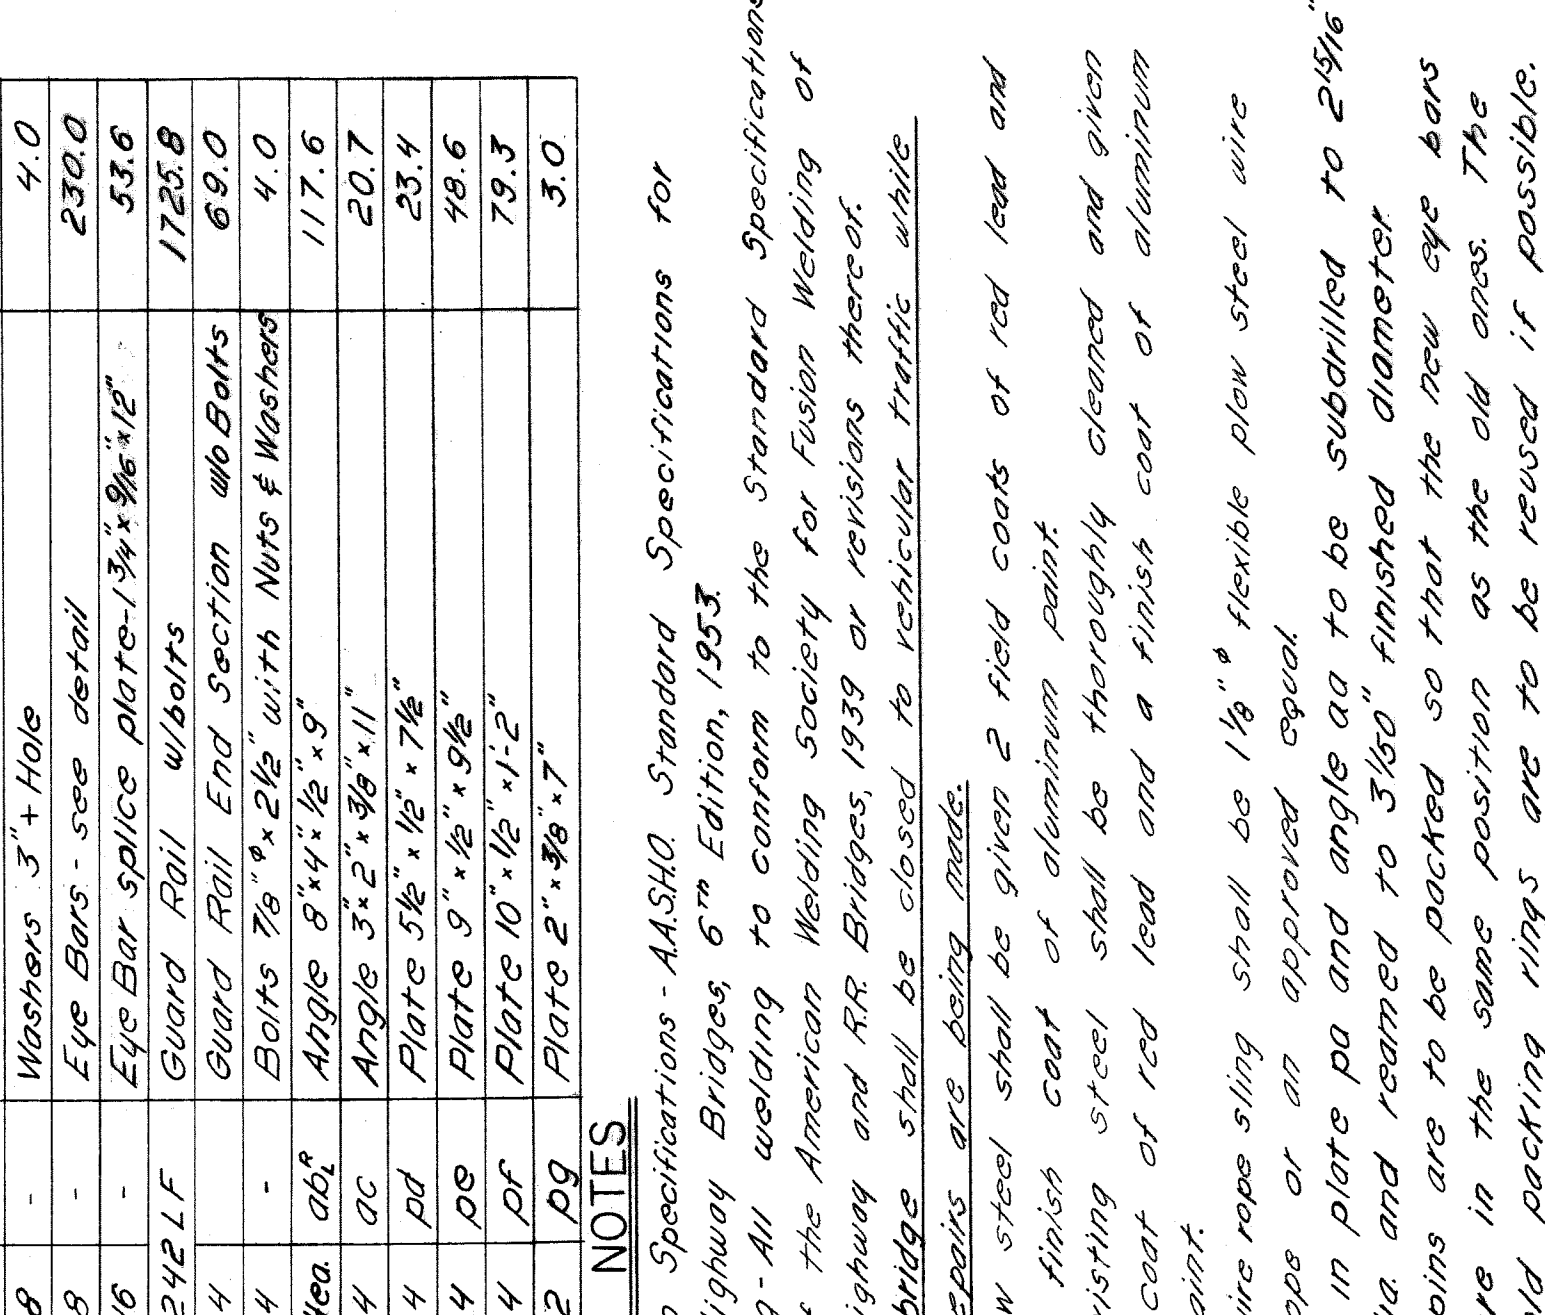 8 - Washers 3" + Hole 4.0
8 - Eye Bars - see detail 230.0
16 - Eye Bar splice plate - 1 3/4" x 9/16" x 12" 53.6
242 LF Guard Rail w/bolts 1725.8
4 Guard Rail End Section w/o Bolts 69.0
4 - Bolts 7/8"ϕ x 2 1/2" with Nuts & Washers 4.0
4ea. abRL Angle 8" x 4" x 1/2" x 9" 117.6
4 ac Angle 3" x 2" x 3/8" x 11" 20.7
4 pd Plate 5 1/2" x 1/2" x 7 1/2" 23.4
4 pe Plate 9" x 1/2" x 9 1/2" 48.6
4 pf Plate 10" x 1/2" x 1'-2" 79.3
2 pg Plate 2" x 3/8" x 7" 3.0
NOTES
n Specifications - A.A.S.H.O. Standard Specifications for
ighway Bridges, 6th Edition, 1953.
g - All welding to conform to the Standard Specifications
f the American Welding Society for Fusion Welding of
ighway and R.R. Bridges, 1939 or revisions thereof.
bridge shall be closed to vehicular traffic while
epairs are being made.
w steel shall be given 2 field coats of red lead and
finish coat of aluminum paint.
visting steel shall be thoroughly cleaned and given
coat of red lead and a finish coat of aluminum
aint.
ire rope sling shall be 1 1/8"ϕ flexible plow steel wire
ope or an approved equal.
in plate pa and angle aa to be subdrilled to 2 15/16"
ia. and reamed to 3 1/50" finished diameter.
oins are to be packed so that the new eye bars
re in the same position as the old ones. The
ld packing rings are to be reused if possible.